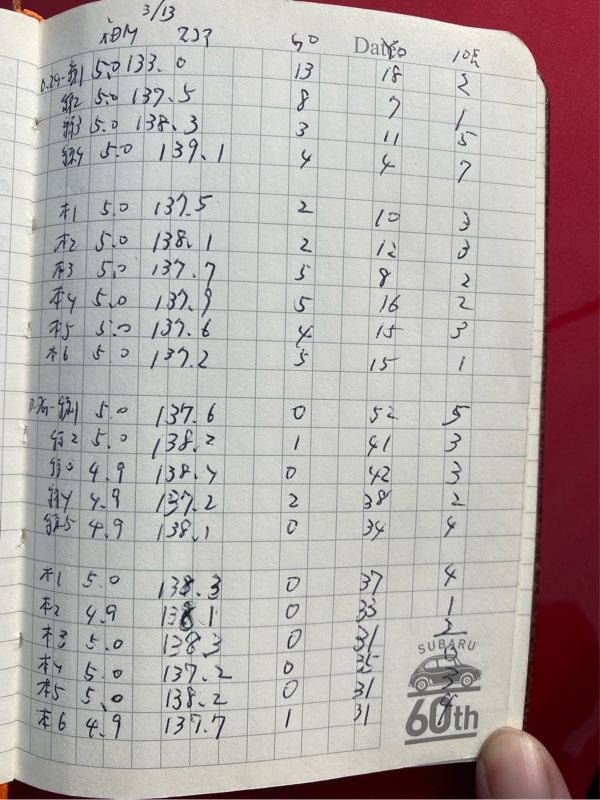 3/13
Date 50 10点
0.2g-錘1 5.0 133.0 13 18 2
錘2 5.0 137.5 8 7 1
錘3 5.0 138.3 3 11 5
錘4 5.0 139.1 4 4 7
本1 5.0 137.5 2 10 3
本2 5.0 138.1 2 12 3
本3 5.0 137.7 5 8 2
本4 5.0 137.9 5 16 2
本5 5.0 137.6 4 15 3
本6 5.0 137.2 5 15 1
錘1 5.0 137.6 0 52 5
錘2 5.0 138.2 1 41 3
錘3 4.9 138.4 0 42 3
錘4 4.9 137.2 2 38 2
錘5 4.9 138.1 0 34 4
本1 5.0 138.3 0 37 4
本2 4.9 138.1 0 33 1
本3 5.0 138.3 0 31 2
SUBARU
本4 5.0 137.2 0 35
本5 5.0 138.2 0 31
本6 4.9 137.7 1 31 4
60th